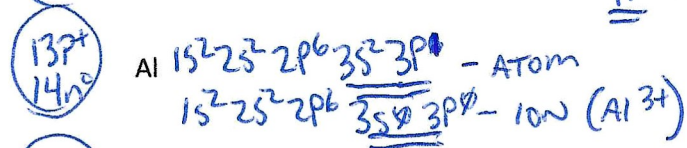 13p⁺
14n⁰
Al 1s² 2s² 2p⁶ 3s² 3p¹ - ATOM
1s² 2s² 2p⁶ 3s⁰ 3p⁰ - ION (Al³⁺)